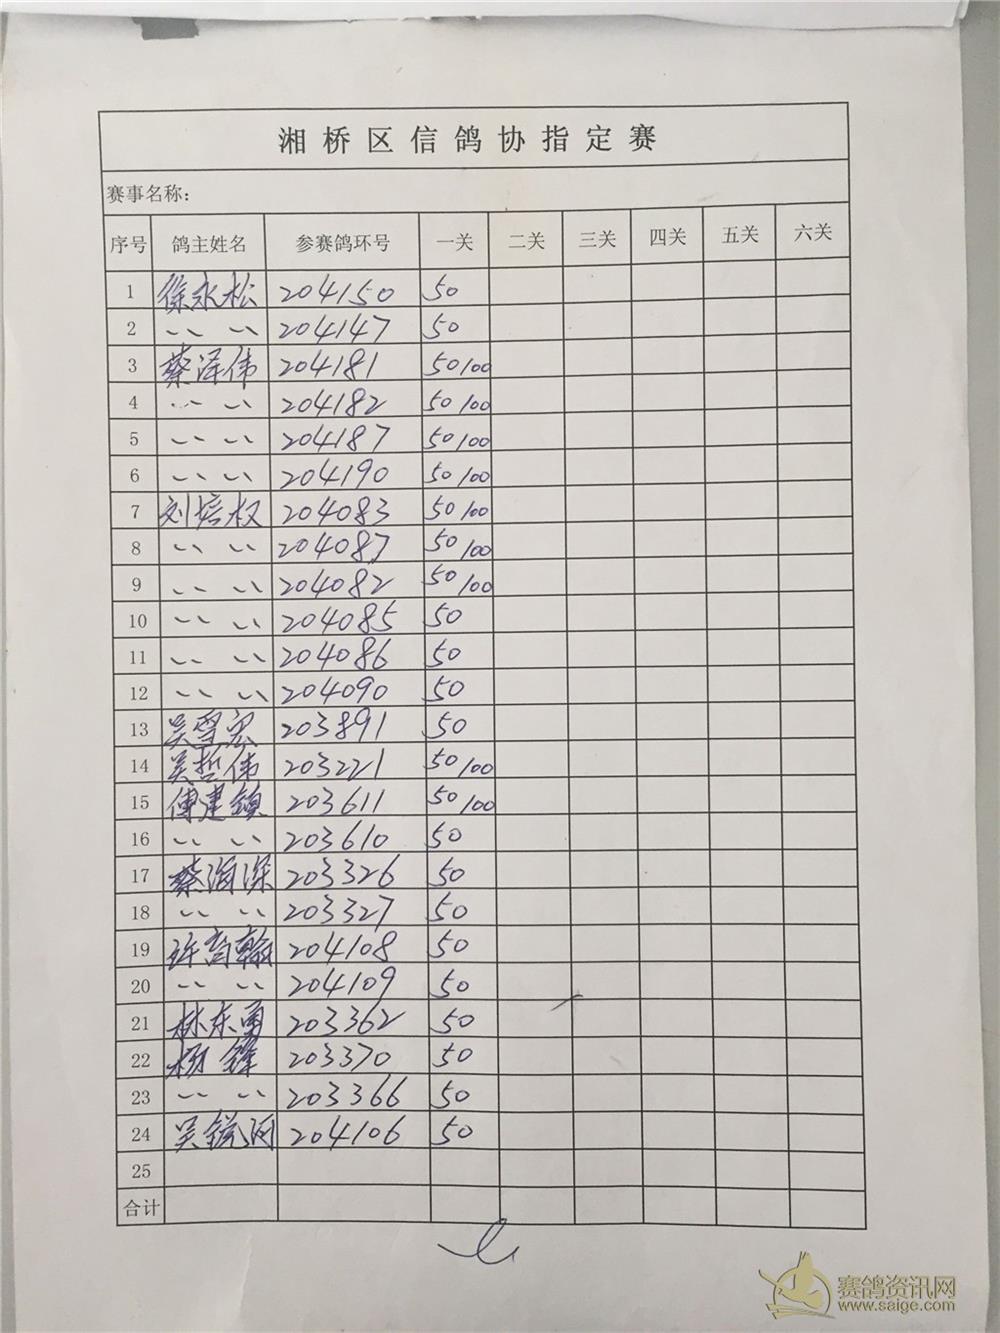 湘桥区信鸽协指定赛
赛事名称:
序号 鸽主姓名 参赛鸽环号 一关 二关 三关 四关 五关 六关
1 徐永松 204150 50
2 〃 〃 204147 50
3 蔡泽伟 204181 50/100
4 〃 〃 204182 50/100
5 〃 〃 204187 50/100
6 〃 〃 204190 50/100
7 刘培权 204083 50/100
8 〃 〃 204087 50/100
9 〃 〃 204082 50/100
10 〃 〃 204085 50
11 〃 〃 204086 50
12 〃 〃 204090 50
13 吴雪宏 203891 50
14 吴哲伟 203221 50/100
15 傅建镇 203611 50/100
16 〃 〃 203610 50
17 蔡海深 203326 50
18 〃 〃 203327 50
19 许育翰 204108 50
20 〃 〃 204109 50
21 林东勇 203362 50
22 杨锋 203370 50
23 〃 〃 203366 50
24 204106 50
25
合计
赛鸽资讯网
www.saige.com